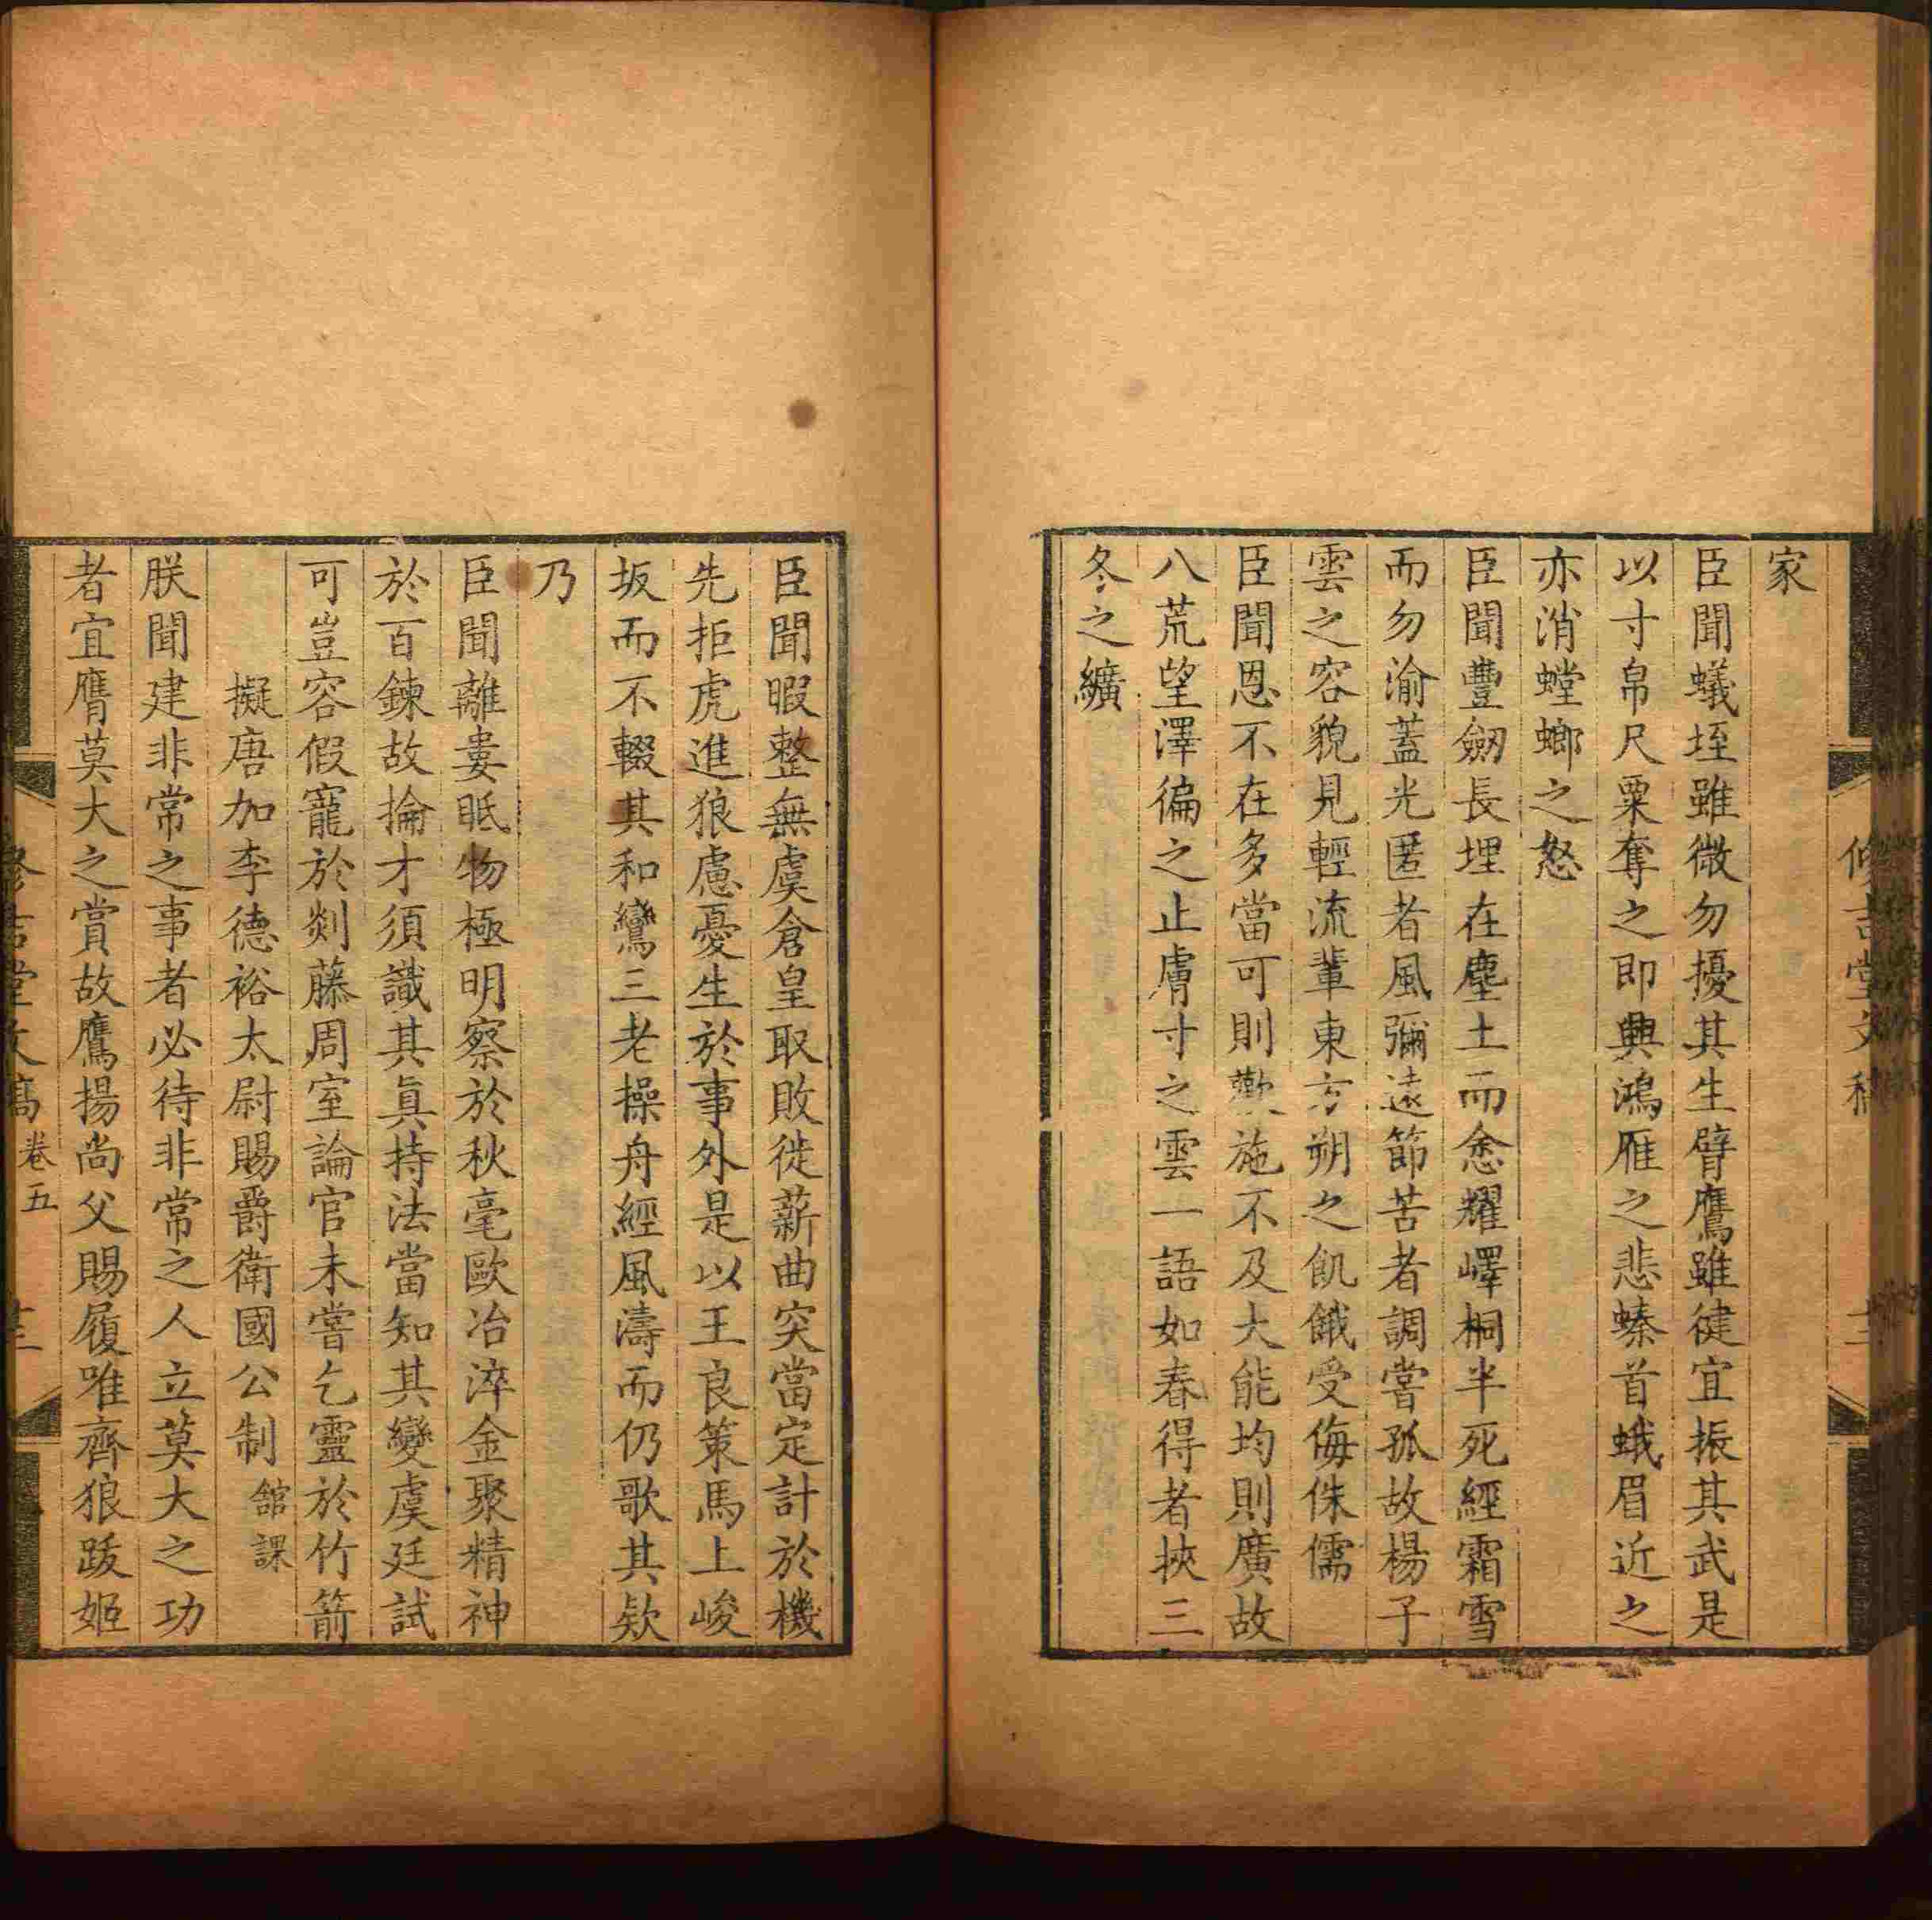 家
臣聞蟻垤雖微勿擾其生臂鷹雖健宜振其武是
以寸帛尺粟奪之即興鴻雁之悲螓首蛾眉近之
亦消螳螂之怒
臣聞豐劒長埋在塵土而悆耀嶧桐半死經霜雪
而勿渝蓋光匿者風彌遠節苦者調嘗孤故楊子
雲之容貌見輕流輩東方朔之飢餓受侮侏儒
臣聞恩不在多當可則歡施不及大能均則廣故
八荒望澤徧之止膚寸之雲一語如春得者挾三
冬之纊
臣聞暇整無虞倉皇取敗徙薪曲突當定計於機
先拒虎進狼慮憂生於事外是以王良策馬上峻
坂而不輟其和鸞三老操舟經風濤而仍歌其欸
乃
臣聞離婁眡物極明察於秋毫歐冶淬金聚精神
於百鍊故掄才須識其真持法當知其變虞廷試
可豈容假寵於剡藤周室論官未嘗乞靈於竹箭
擬唐加李德裕太尉賜爵衛國公制 舘課
朕聞建非常之事者必待非常之人立莫大之功
者宜膺莫大之賞故鷹揚尚父賜履唯齊狼跋姬
堂文稿 卷五